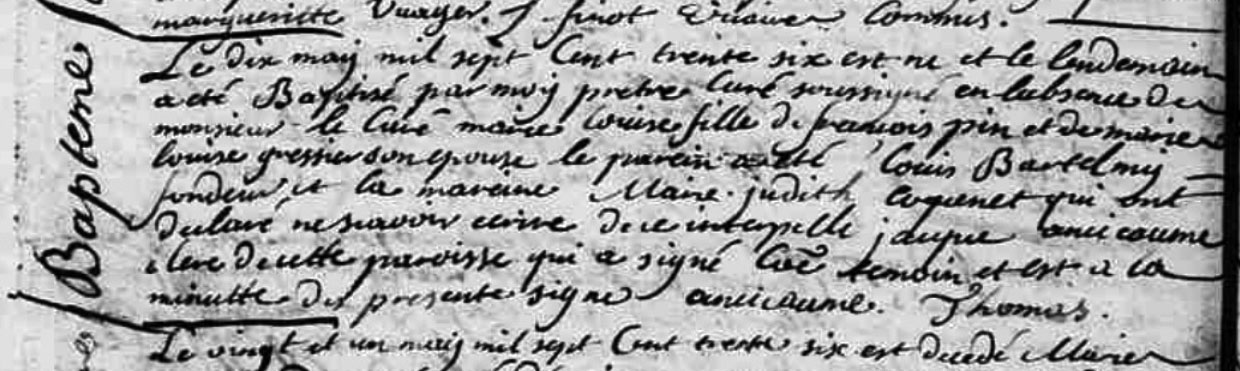 margueritte Vuayer. / finot Vicaire Commis.
Baptême
Le dix may mil sept Cent trente six est ne et le lendemain
a eté Baptisé par moy pretre Curé soussigné en labsence de
monsieur le Curé marie louise fille de francois pin et de marie
louise gressier son epouse le parein a eté louis Bartelmy
fondeur et la mareine Marie judith Coquenet qui ont
declaré ne scavoir ecrire de ce interpellé jacque anicaume
clerc de cette paroisse qui a signé Coe temoin et est a la
minutte des presente signé anicaume. Thomas.
Le vingt et un may mil sept Cent trente six est decedé Marie